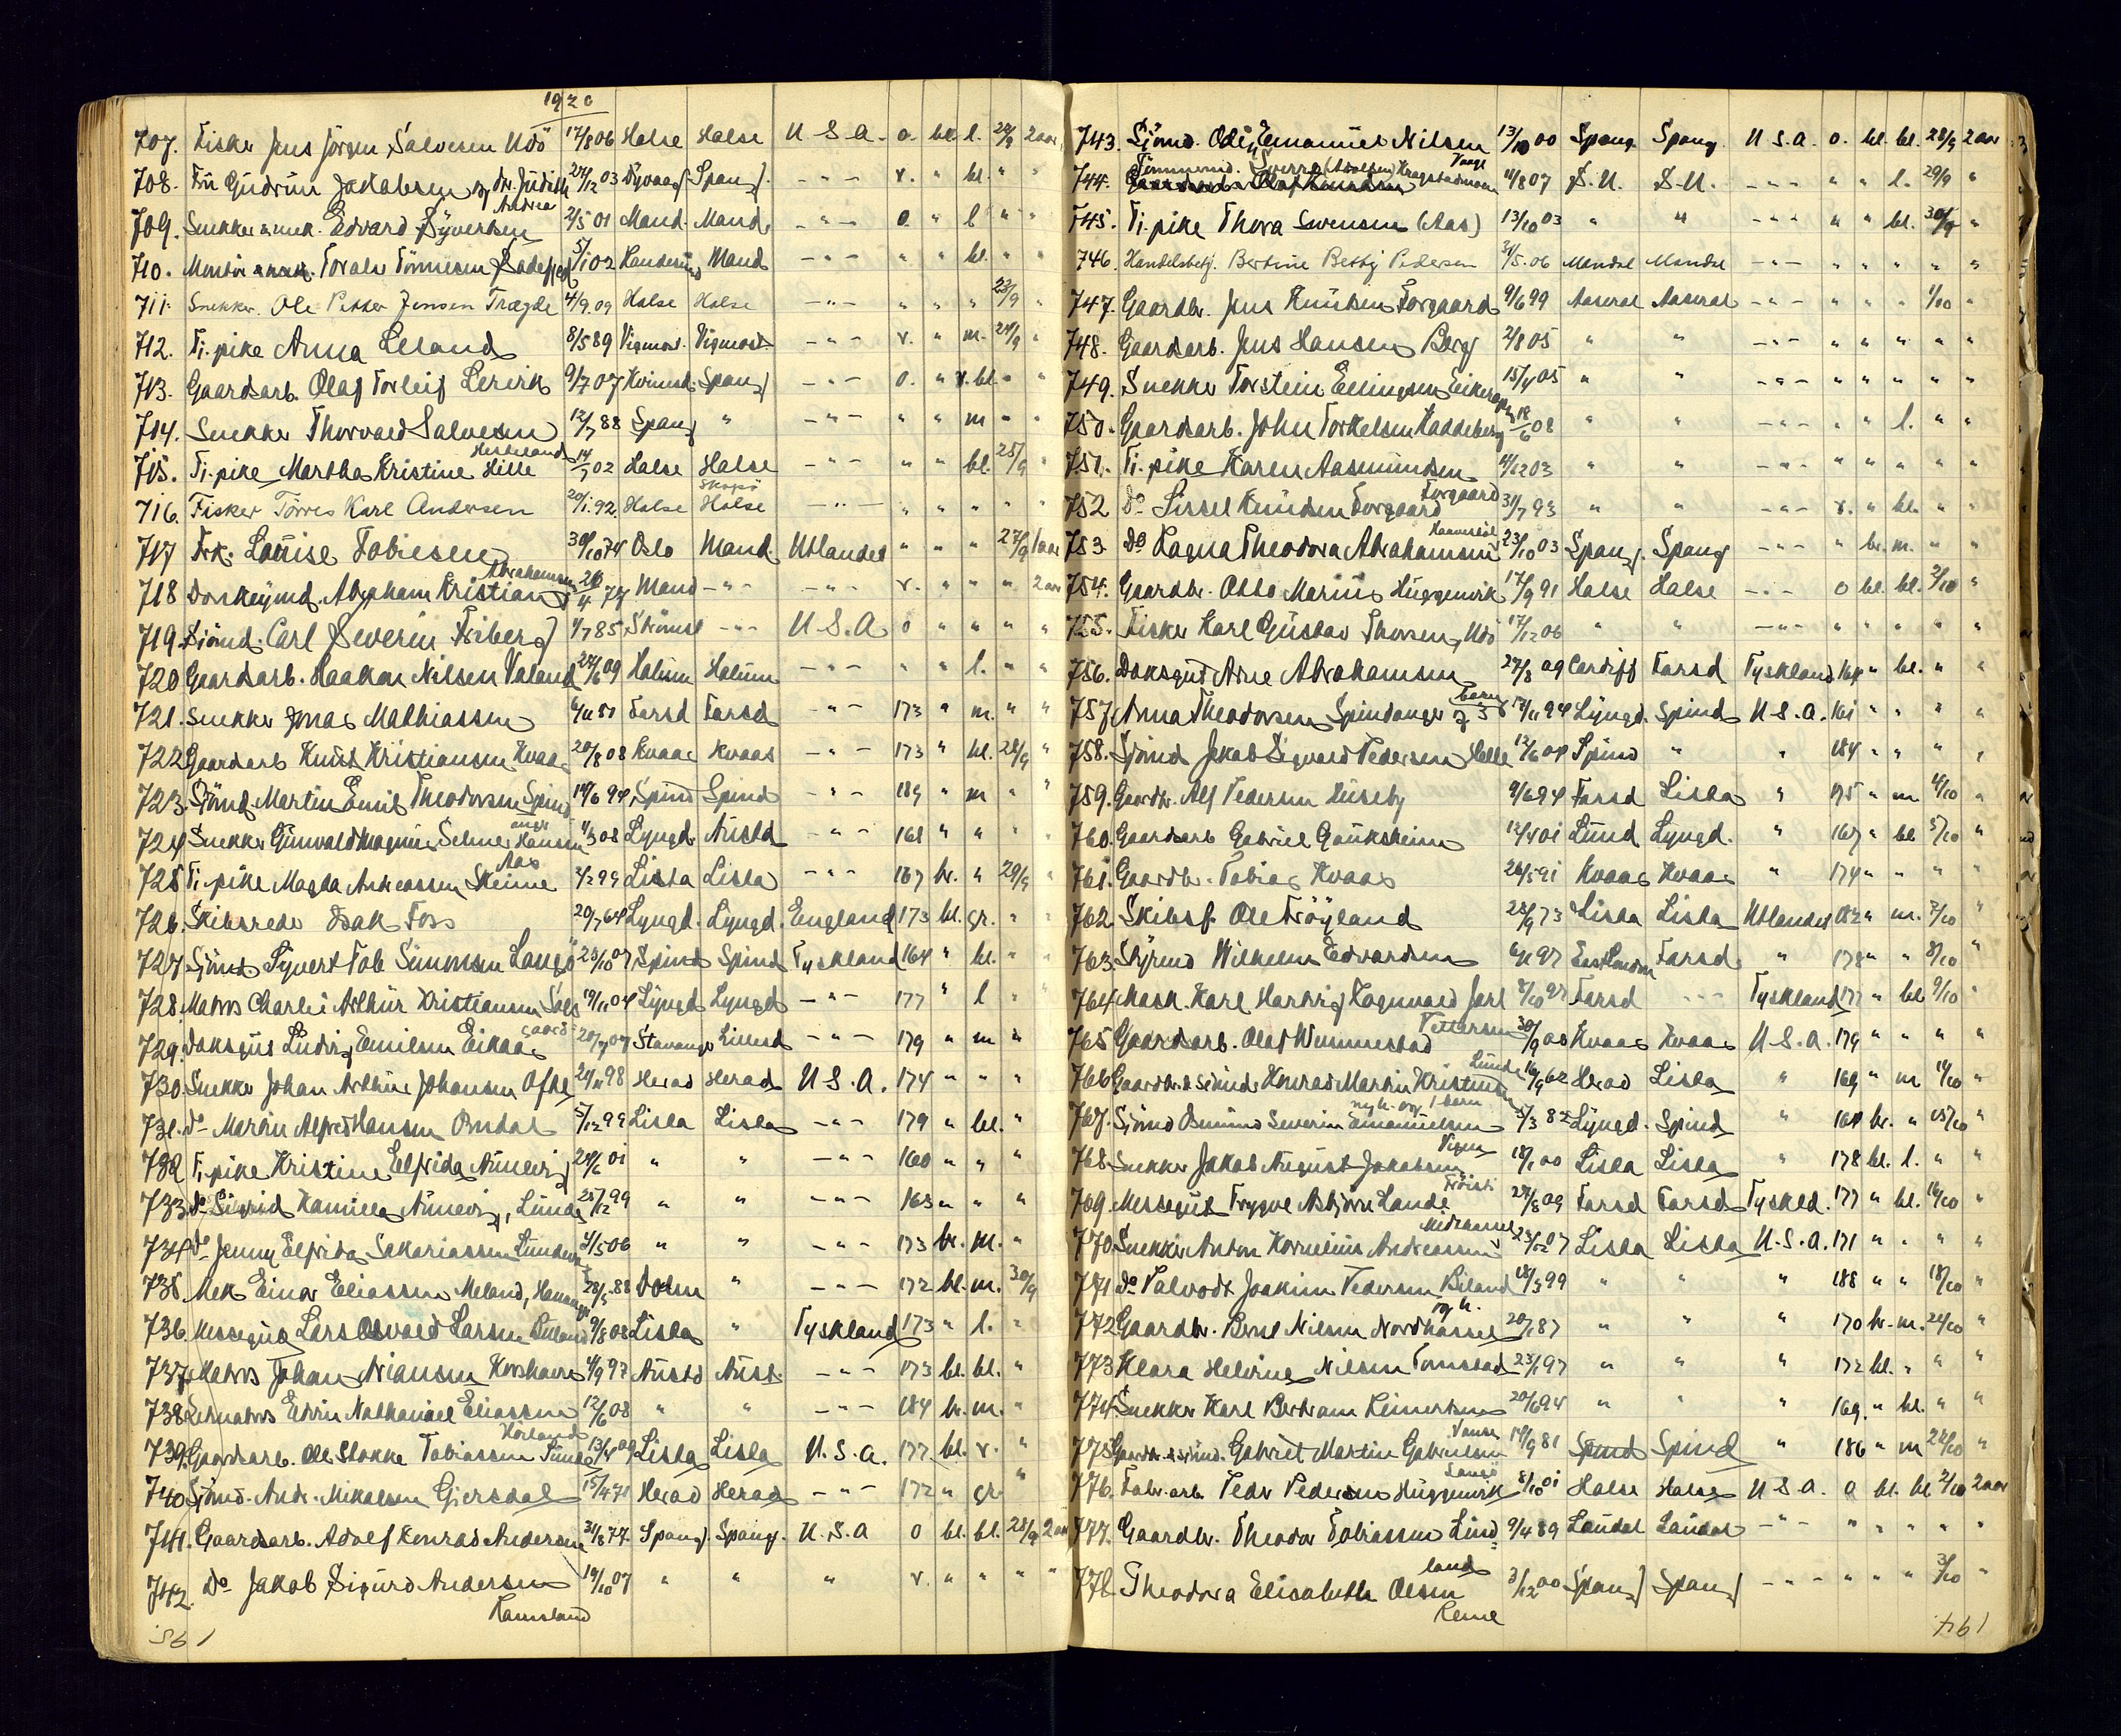 1920
707. Fisker Jens Jörgen Salvesen Udö 17/8 06 Halse Halse U S A - o. bl. l. 24/9 2 aar
708. Fru Gudrun Jakobsen og dr. Judith 24/12 03 Dyvaag Spang. - " - v. " bl. " "
Andrea
709. Snekker & mek. Edvard Syvertsen 2/5 01 Mand. Mand. - " - o. " l " "
710. Montör Toralv Tönnesen 5/1 02 Mand - " - " " bl. " "
711. Snekker. Ole Petter Jensen Trægde 4/9 09 Halse Halse - " - " " " 23/9 "
712. Tj. pike Anna Leland 8/5 89 Vigmost. Vigmost. - " - v. " m. 24/9 "
713. Gaardsarb. Olaf Torleif Lervik 9/7 07 Kvinesd. Spang - " - o. " v. bl. " "
714. Snekker Thorvald Salvesen 12/7 88 Spang " - " - " " m " "
715. Tj. pike Martha Kristine Hille 14/7 02 Halse Halse - " - " " bl. 25/9 "
716. Fisker Törres Karl Andersen 20/1. 92. Halse Halse - " - " " " " "
Skogsö
717 Frk. Louise Tobiesen 30/10 74 Oslo Mand. Utlandet " " " 27/9 1 aar
Abrahamsen
718 Donkeymd. Abraham Kristian 26/4 77 Mand - " - - " - v. " " " 2 aar
719 Sjömd. Carl Severin Friberg 1/7 85 - " - U.S.A. o " " " "
720 Gaardsarb. Haakon Nilsen Valand 24/6 09 Halum Halum - " - " " l. " "
721. Snekker Jonas Mathiassen 6/11 81 Farsd Farsd - " - 173 " m. " "
722 Gaardsarb Knut Kristiansen Kvaas 20/8 08 Kvaas Kvaas - " - 173 " bl. 28/9 "
723. Sjömd. Martin Emil Theodorsen Spind 14/6 94 Spind Spind - " - 189 " m " "
anger
724 Snekker Gunvald Magnus Selmer Hansen 1/3 08 Lyngd. Austd - " - 168 " " " "
Aas
725 Tj. pike Magda Andreassen Steine 3/2 99 Lista Lista - " - 167 br. " 29/9 "
726. Skibsreder Isak Foss 20/7 64 Lyngd. Lyngd. England 173 bl. gr. " "
727 Sjömd Syvert Tob Simonsen Langö 23/10 07 Spind Spind Tyskland 164 " bl. " "
728. Matros Charlie Arthur Kristiansen 19/11 04 Lyngd Lyngd - " - 177 " l " "
729. Daksgut Ludvig Emilsen Eikaas 20/7 07 Stavanger - " - 179 " m "
730. Snekker Johan Arthur Johansen Ofte 24/11 98 Herad Herad U S. A. 174 " " "
731. do Martin Alfred Hansen Omdal 5/12 99 Lista Lista - " - 179 " bl. "
732 Tj. pike Kristine Elfrida Aunevig 24/6 01 " " - " - 160 " " "
733 do Sigrid Kamilla Aunevig, Lunde 25/12 99 " " - " - 163 " " "
734 do Jenny Elfrida Sakariassen 4/5 06 " " - " - 173 br. m. "
735. Mek Einar Eliassen Meland, 28/5 88 " - " - 172 bl. m. 30/9
736. Messegut Lars Osvald Larsen 9/8 08 Lista " Tyskland 173 " l. "
737. Matros Johan Korshavn 4/9 97 Austd Aust. - " - 173 bl. bl. "
738 Edvin Nathaniael Eliassen 12/6 08 " " - " - 184 br. m. "
739. Gaardsarb. Ole Stokke Tobiassen Sunde 13/4 09 Lista Lista U. S. A. 177 bl. v. "
740 Sjömd. Andr. Mikalsen Gjersdal 15/4 71 Herad Herad - " - 172 " gr. "
741. Gaardsarb. Adolf Konrad Andersen 31/8 77. Spang. Spang. U. S. A o bl. bl. 28/9 2 aar
742. do Jakob Sigurd Andersen 19/10 07 " " " v. " " " "
Ramsland
195
743. Sjömd. Odin Emanuel Nilsen 13/10 00 Spang. Spang. U S. A. o. bl. bl. 28/9 2 aar
744. Tömmermd. Sverre 11/8 07 S. U. S. U. - " - " " l. 29/9 "
745. Tj. pike Thora Svensen (Aas) 13/10 03 " " - " - " " bl. 30/9 "
746. Handelsbetj. Bertine Betty Pedersen 31/5. 06 Mandal Mandal - " - " " " " "
747. Gaardbr. Jens Knutsen Forgaard 9/6 99 Aaseral Aaseral - " - " " " 1/10 "
748. Gaardsarb. Jens Hansen Berg 2/8 05 " " - " - " " " " "
749. Snekker Torstein Ellingsen Eikerapen 15/4 05 " " - " - " " " " "
750. Gaardsarb. John Torkelsen Haddeberg 18/6 08 " " - " - " " l. " "
751. Tj. pike Karen Aasmundsen 4/12 03 " " - " - " " " " "
Forgaard
752 do Sissel Knudsen Forgaard 31/7 93 " " - " - v. " bl. " "
753. do Ragna Theodora Abrahamsen 23/10 03 Spang. Spang - " - " br. m. " "
754. Gaardbr. Otto Marius Huggenvik 17/9 91 Halse Halse - " - o bl. bl. 2/10 "
755. Fisker Karl Gustav Thorsen, Udö 17/12 06 " " - " - " " " " "
756. Daksgut Arne Abrahamsen 27/8 09 Cardiff Farsd Tyskland 164 " bl. " "
757 Anna Theodorsen Spindanger 17/11 94 Lyngd. Spind U S. A. 161 " " " "
758. Sjömd Jakob Sigvard Pedersen Helle 12/6 04 Spind " " 184 " " " "
759. Gaardbr. Alf Pedersen Huseby 9/6 94 Farsd Lista " 175 " m 4/10 "
760. Gaardsarb Gabriel Gauksheim 12/4 01 Lund Lyngd. " 167 " bl 5/10 "
761. Gaardbr. Tobias Kvaas 26/5 91 Kvaas Kvaas " 174 " " " "
762 Skibsf. Ole Fröyland 28/9 73 Lista Lista Utlandet 182 " m. 7/10 "
763. Styrmd Wilhelm Edvardsen 97 East London Farsd. " 178 " " 8/10 "
764 Mask. Karl Hartvig Ragnvald Jarl 97 Farsd - - - Tyskland 177 " bl 9/10 "
Pettersen
765 Gaardsarb. Olaf Wemmestad 30/9 08 Kvaas Kvaas U S. A. 179 " " " "
Lunde
766 Gaardbr. & Sjömd. Konrad Martin Kristensen 16/9 62 Herad Lista " 169 " m 11/10 "
767. Sjömd Osmund Severin Emanuelsen 5/3 82 Lyngd. Spind " 164 br. " 15/10 "
768. Snekker Jakob August Jakobsen 18/1 00 Lista Lista " 178 bl. l. " "
769. Messegut Trygve Asbjörn Lande 24/8 09 Farsd Farsd Tyskld. 177 " bl. 16/10 "
Midthassel
770. Snekker Anton Kornelius Andreassen 23/12 07 Lista Lista U. S. A. 171 " " " "
771 do Salvodt Joakim Pedersen Biland 18/3 99 " " " 188 " " 18/10 "
772 Gaardbr. Bernt Nilsen Nordhassel 20/1 87 " " " 170 br. m. 21/10 "
773 Klara Helvine Nilsen Tomstad 23/1 97 " " " 172 bl. " " "
774 Snekker Karl Bertram Reinertsen 20/6 94 " " " 169. " bl. " "
Vanse
775 Gaardbr. & Sjömd. Gabriel Martin Gabrielsen 14/9 81 Spind Spind " 186 " m 22/10 "
776. Fabr. arb. Peder Pedersen Huggenvik 8/10 01 Halse Halse U S A. o bl. bl 2/10 2 aar
777. Gaardbr. Theodor Tobiassen Lind 9/4 89 Laudal Laudal - " - " " " " "
land
778. Theodora Elisabeth Olsen 3/12 00 Spang Spang - " - " " " 3/10 "
Reme
194